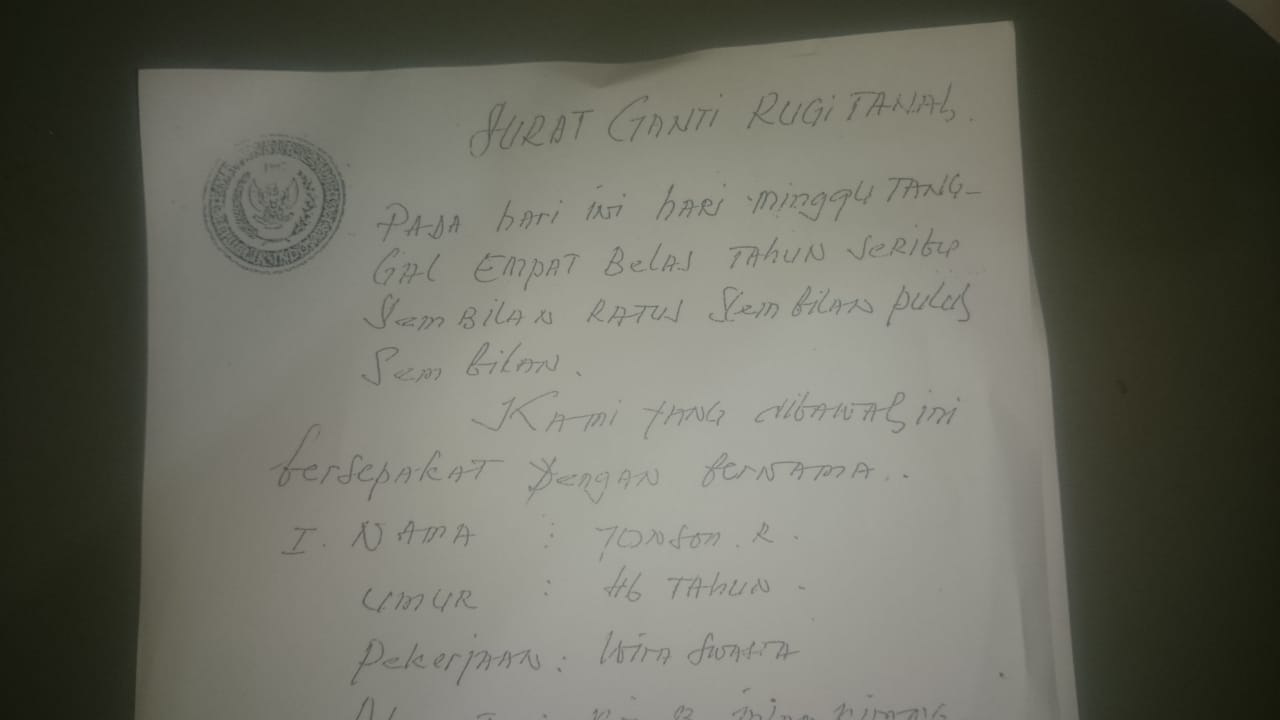 SURAT GANTI RUGI TANAH.
PADA hari ini hari minggu TANG-
GAL EMPAT BELAS TAHUN SERIBU
SEMBILAN RATUS SEMBILAN puluh
SEMBILAN.
KAMI YANG dibawah ini
bersepakat dengan bernama..
I. NAMA : JONSON. R.
UMUR : 46 TAHUN.
Pekerjaan : Wira Swasta